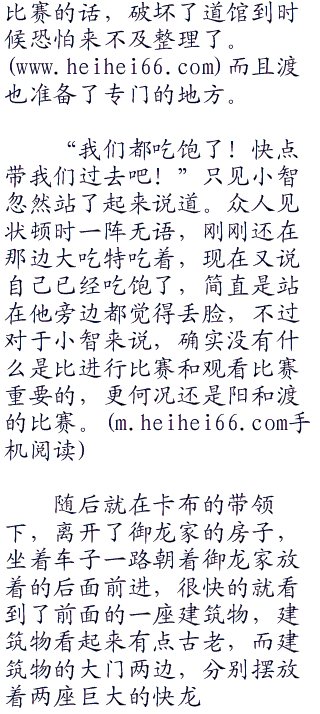 比赛的话，破坏了道馆到时
候恐怕来不及整理了。
(www.heihei66.com)而且渡
也准备了专门的地方。
“我们都吃饱了！快点
带我们过去吧！”只见小智
忽然站了起来说道。众人见
状顿时一阵无语，刚刚还在
那边大吃特吃着，现在又说
自己已经吃饱了，简直是站
在他旁边都觉得丢脸，不过
对于小智来说，确实没有什
么是比进行比赛和观看比赛
重要的，更何况还是阳和渡
的比赛。(m.heihei66.com手
机阅读)
随后就在卡布的带领
下，离开了御龙家的房子，
坐着车子一路朝着御龙家放
着的后面前进，很快的就看
到了前面的一座建筑物，建
筑物看起来有点古老，而建
筑物的大门两边，分别摆放
着两座巨大的快龙